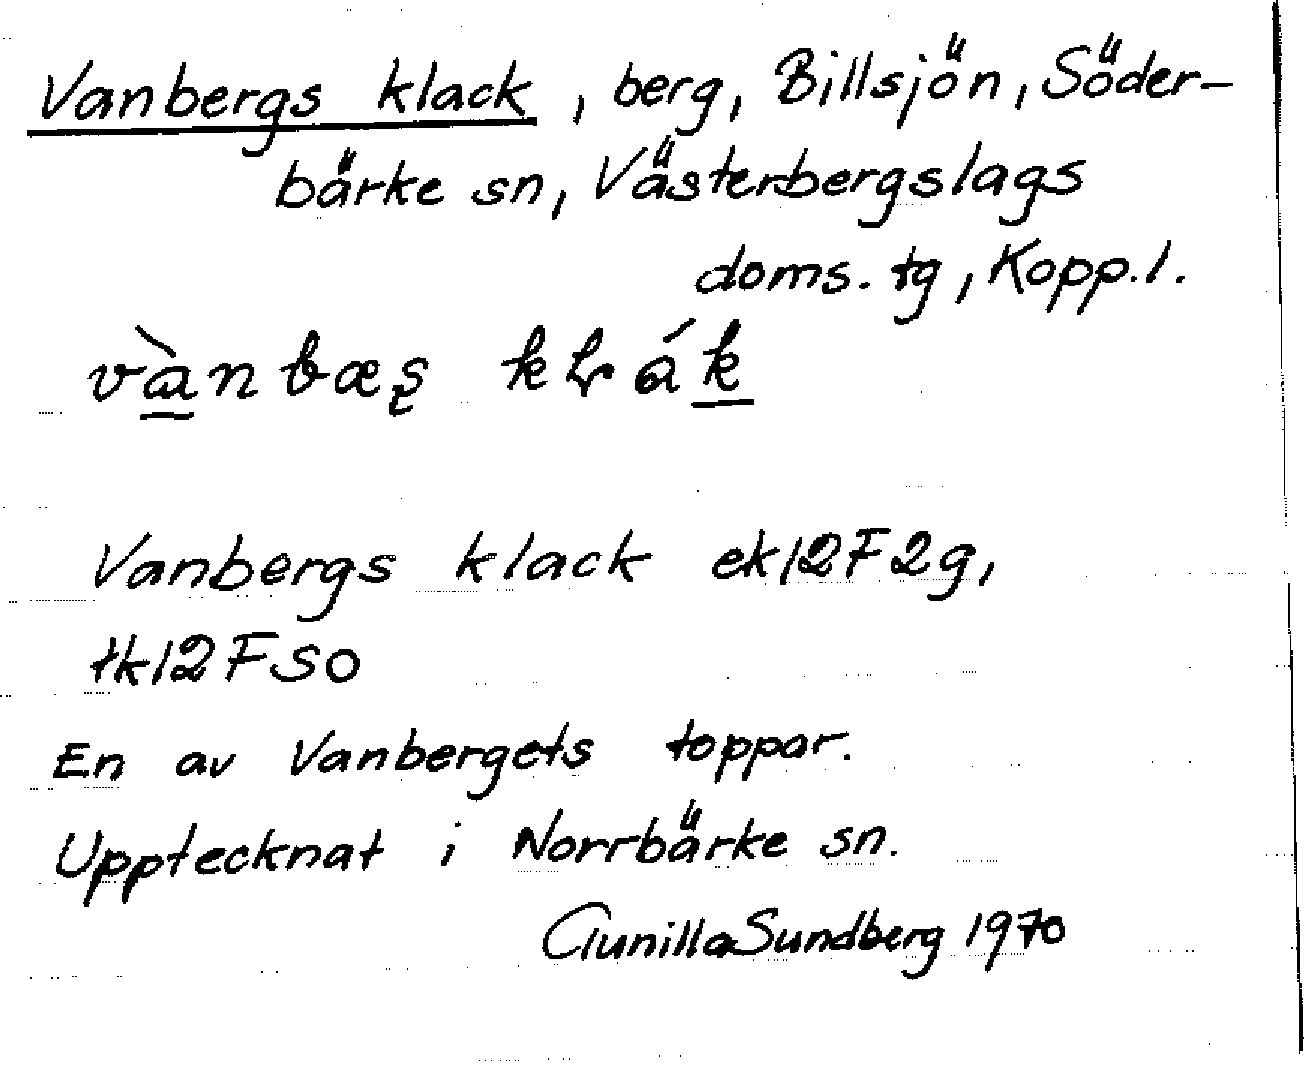 Vanbergs klack, berg, Billsjön, Söder-
bärke sn, Västerbergslags
doms. tg, Kopp.l.
Vanbergs klack ek12F2g,
tk12FSO
En av Vanbergets toppar.
Upptecknat i Norrbärke sn.
Gunilla Sundberg 1970